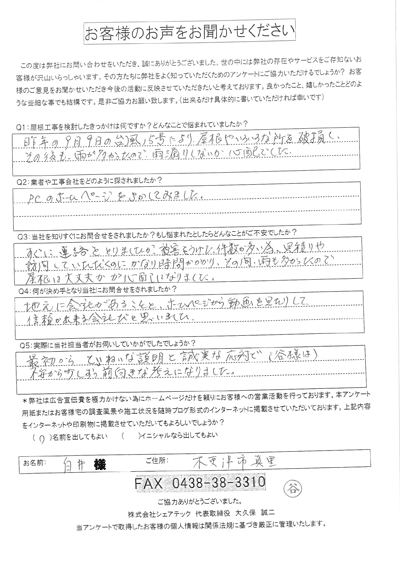 お客様のお声をお聞かせください
この度は弊社にお問い合わせをいただき、誠にありがとうございました。世の中には弊社の存在やサービスをご存知ないお
客様が沢山いらっしゃいます。その方たちに弊社をよく知っていただくためのアンケートにご協力いただけるでしょうか？ お客
様のご意見をお聞かせいただき今後の活動に反映させていただきたいと考えております。良かったこと、嬉しかったことどのよ
うな些細な事でも結構です。是非ご協力お願い致します。(出来るだけ具体的に書いていただければ幸いです)
Q1：屋根工事を検討したきっかけは何ですか？どんなことで悩まれていましたか？
昨年の9月9日の台風15号により屋根やいろいろな所を破損し、
その後も、雨が多かったので雨漏りしないか心配でした。
Q2：業者や工事会社をどのように探されましたか？
PCのホームページをさがしてみました。
Q3：当社を知りすぐにお問合せをされましたか？もし悩まれたとしたらどんなことがご不安でしたか？
すぐに連絡をとりましたが、被害をうけた件数が多い為、見積りや
訪問していただくのにかなり時間がかかり、その間、雨も多かったので
屋根は大丈夫か心配になりました。
Q4：何が決め手となり当社にお問合せをされましたか？
地元に会社があることと、ホームページから動画を見たりして
信頼が出来る会社だと思いました。
Q5：実際に当社担当者がお伺いしていかがでしたでしょうか？
最初から、ていねいな説明と誠実な応対で(谷様は)
前向きな考えになりました。
＊弊社は広告宣伝費を極力かけない為にホームページだけを頼りにお客様への営業活動を行っております。本アンケート
用紙またはお客様宅の調査風景や施工状況を随時ブログ形式のインターネットに掲載させていただいております。上記内容
をインターネットや印刷物に掲載させていただいてもよろしいでしょうか？
(○)名前を出してもよい (　)イニシャルなら出してもよい
お名前: 白井 様 ご住所: 木更津市真里
FAX 0438-38-3310 谷
ご協力ありがとうございました。
株式会社シェアテック 代表取締役 大久保 誠二
当アンケートで取得したお客様の個人情報は関係法規に基づき厳正に管理いたします。